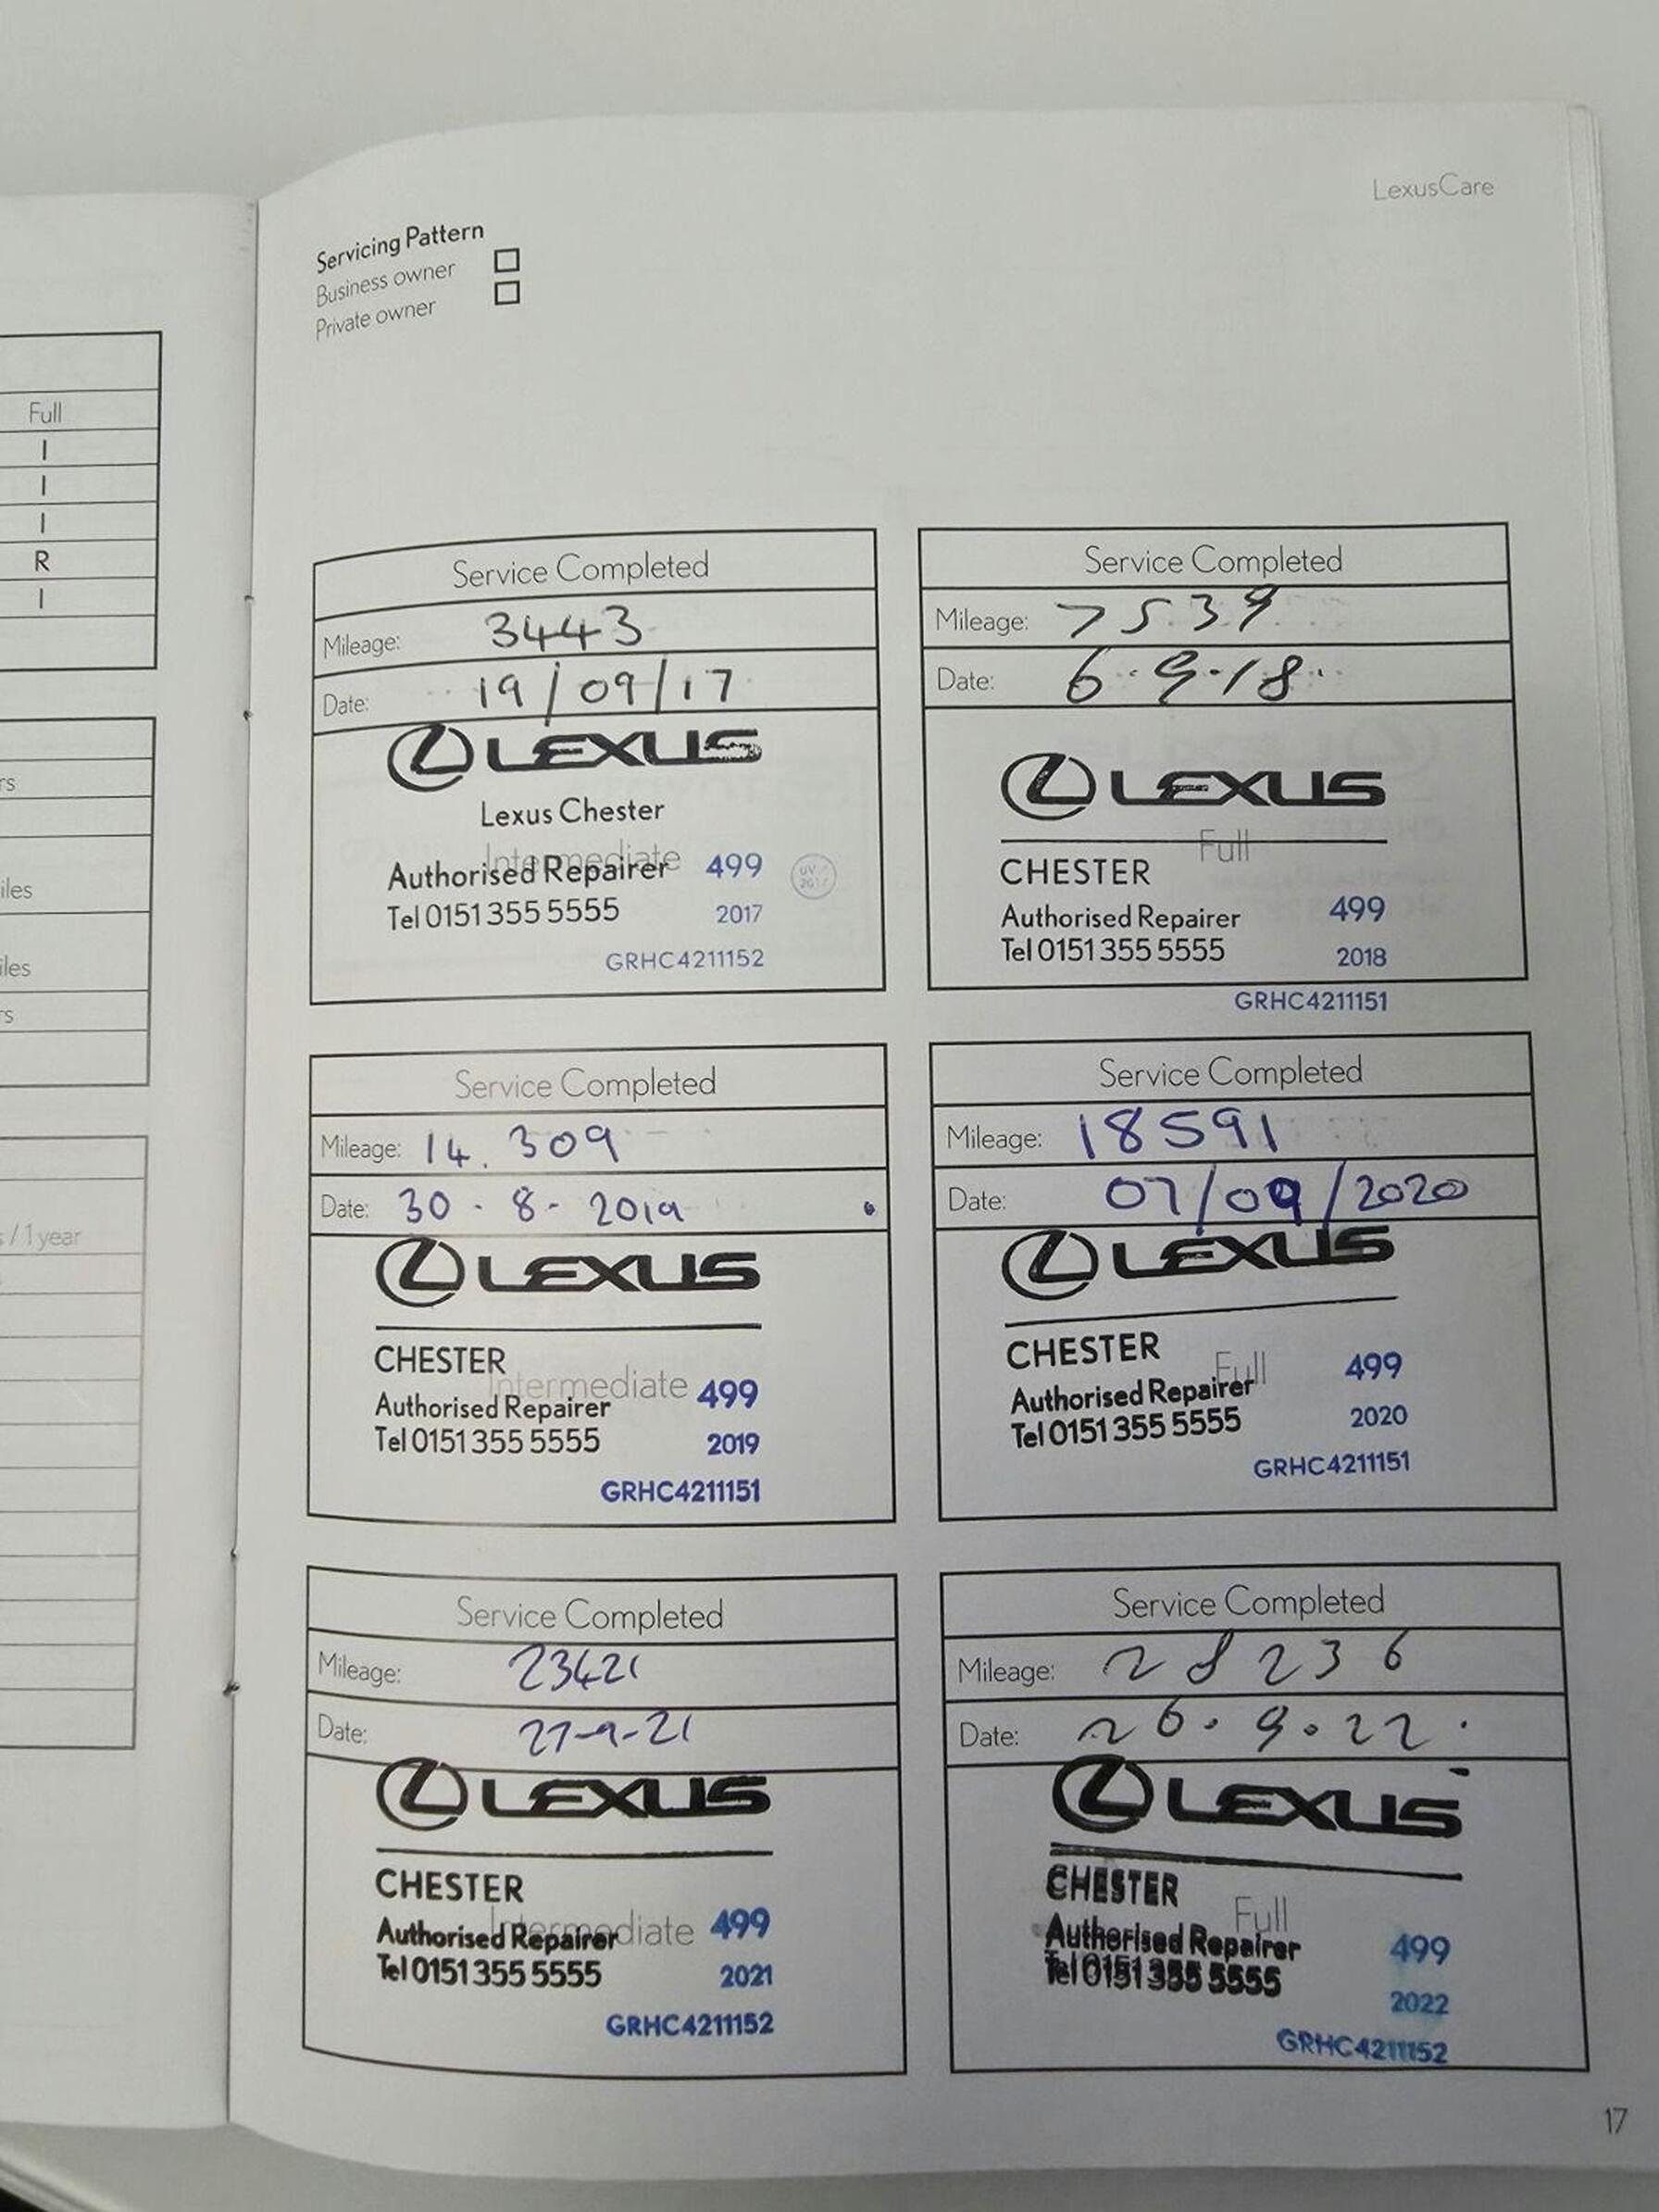 LexusCare
Servicing Pattern
Business owner
Private owner
Full
I
I
I
R
I
rs
iles
iles
rs
s / 1 year
Service Completed
Mileage: 3443
Date: 19/09/17
LEXUS
Lexus Chester
Intermediate
Authorised Repairer 499
UV 2017
Tel 0151 355 5555 2017
GRHC4211152
Service Completed
Mileage: 7539
Date: 6.9.18.
LEXUS
Full
CHESTER
Authorised Repairer 499
Tel 0151 355 5555 2018
GRHC4211151
Service Completed
Mileage: 14.309
Date: 30-8-2019
LEXUS
CHESTER
Intermediate
Authorised Repairer 499
Tel 0151 355 5555 2019
GRHC4211151
Service Completed
Mileage: 18591
Date: 07/09/2020
LEXUS
CHESTER
Full
Authorised Repairer 499
Tel 0151 355 5555 2020
GRHC4211151
Service Completed
Mileage: 23421
Date: 27-9-21
LEXUS
CHESTER
Intermediate
Authorised Repairer 499
Tel 0151 355 5555 2021
GRHC4211152
Service Completed
Mileage: 28236
Date: 26.9.22.
LEXUS
CHESTER
Full
Authorised Repairer 499
Tel 0151 355 5555 2022
GRHC4211152
17